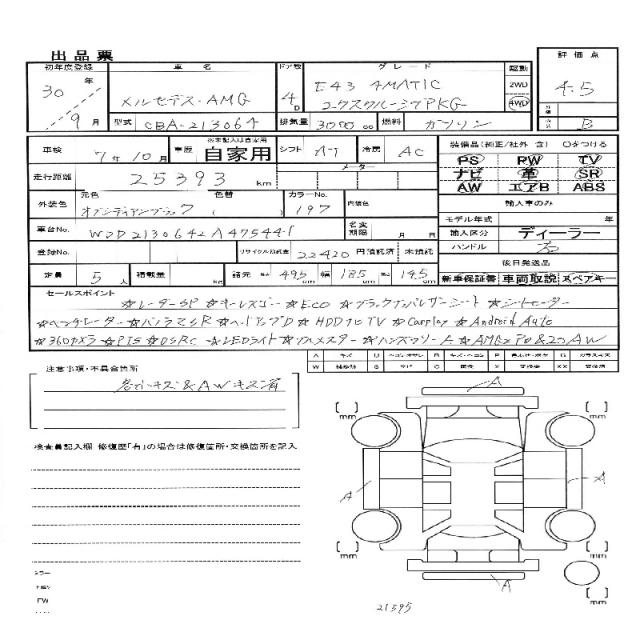 出品票
初年度登録 車名 ドア数 グレード 駆動 評価点
30年 9月
メルセデス・AMG 4D E43 4MATIC 2WD 4.5
エクスクルーシブPKG 4WD
型式 CBA-213064 排気量 3000 cc 燃料 ガソリン B
車検 7年10月 車歴 ※未記入は自家用 自家用 シフト AT 冷房 AC
装備品(純正/社外 含) Oをつける
PS PW TV
ナビ 革 SR
AW エアB ABS
走行距離 25393 km メーター
外装色 元色 オブシディアンブラック 色替 ( ) カラーNo. 197 内装色
輸入車のみ
モデル年式 年
車台No. WDD2130642A475441 名変期限 月 日
輸入区分 ディーラー
登録No. リサイクル預託金 22420 円預託済 未預託
ハンドル 右
定員 5人 積載量 諸元 長さ 495 cm 幅 185 cm 高さ 145 cm
後日発送品
新車保証書 車両取説 スペアキー
セールスポイント
☆レーダーSP ☆キーレスゴー ☆ECO ☆ブラックアンレザーシート ☆シートヒーター
☆ベンチレーター ☆パノラマSR ☆ヘッドアップD ☆HDDナビTV ☆Carplay ☆Android Auto
☆360カメラ ☆PTS ☆DSRC ☆LEDライト ☆アンビエンター ☆ハンズフリーA ☆AMGエアロ&20AW
注意事項・不具合箇所
各所キズ&AWキズ有
検査員記入欄 修復歴「有」の場合は修復箇所・交換箇所を記入
A
[ ] mm [ ] mm
A A
[ ] mm [ ] mm
A
[ ] mm
21395